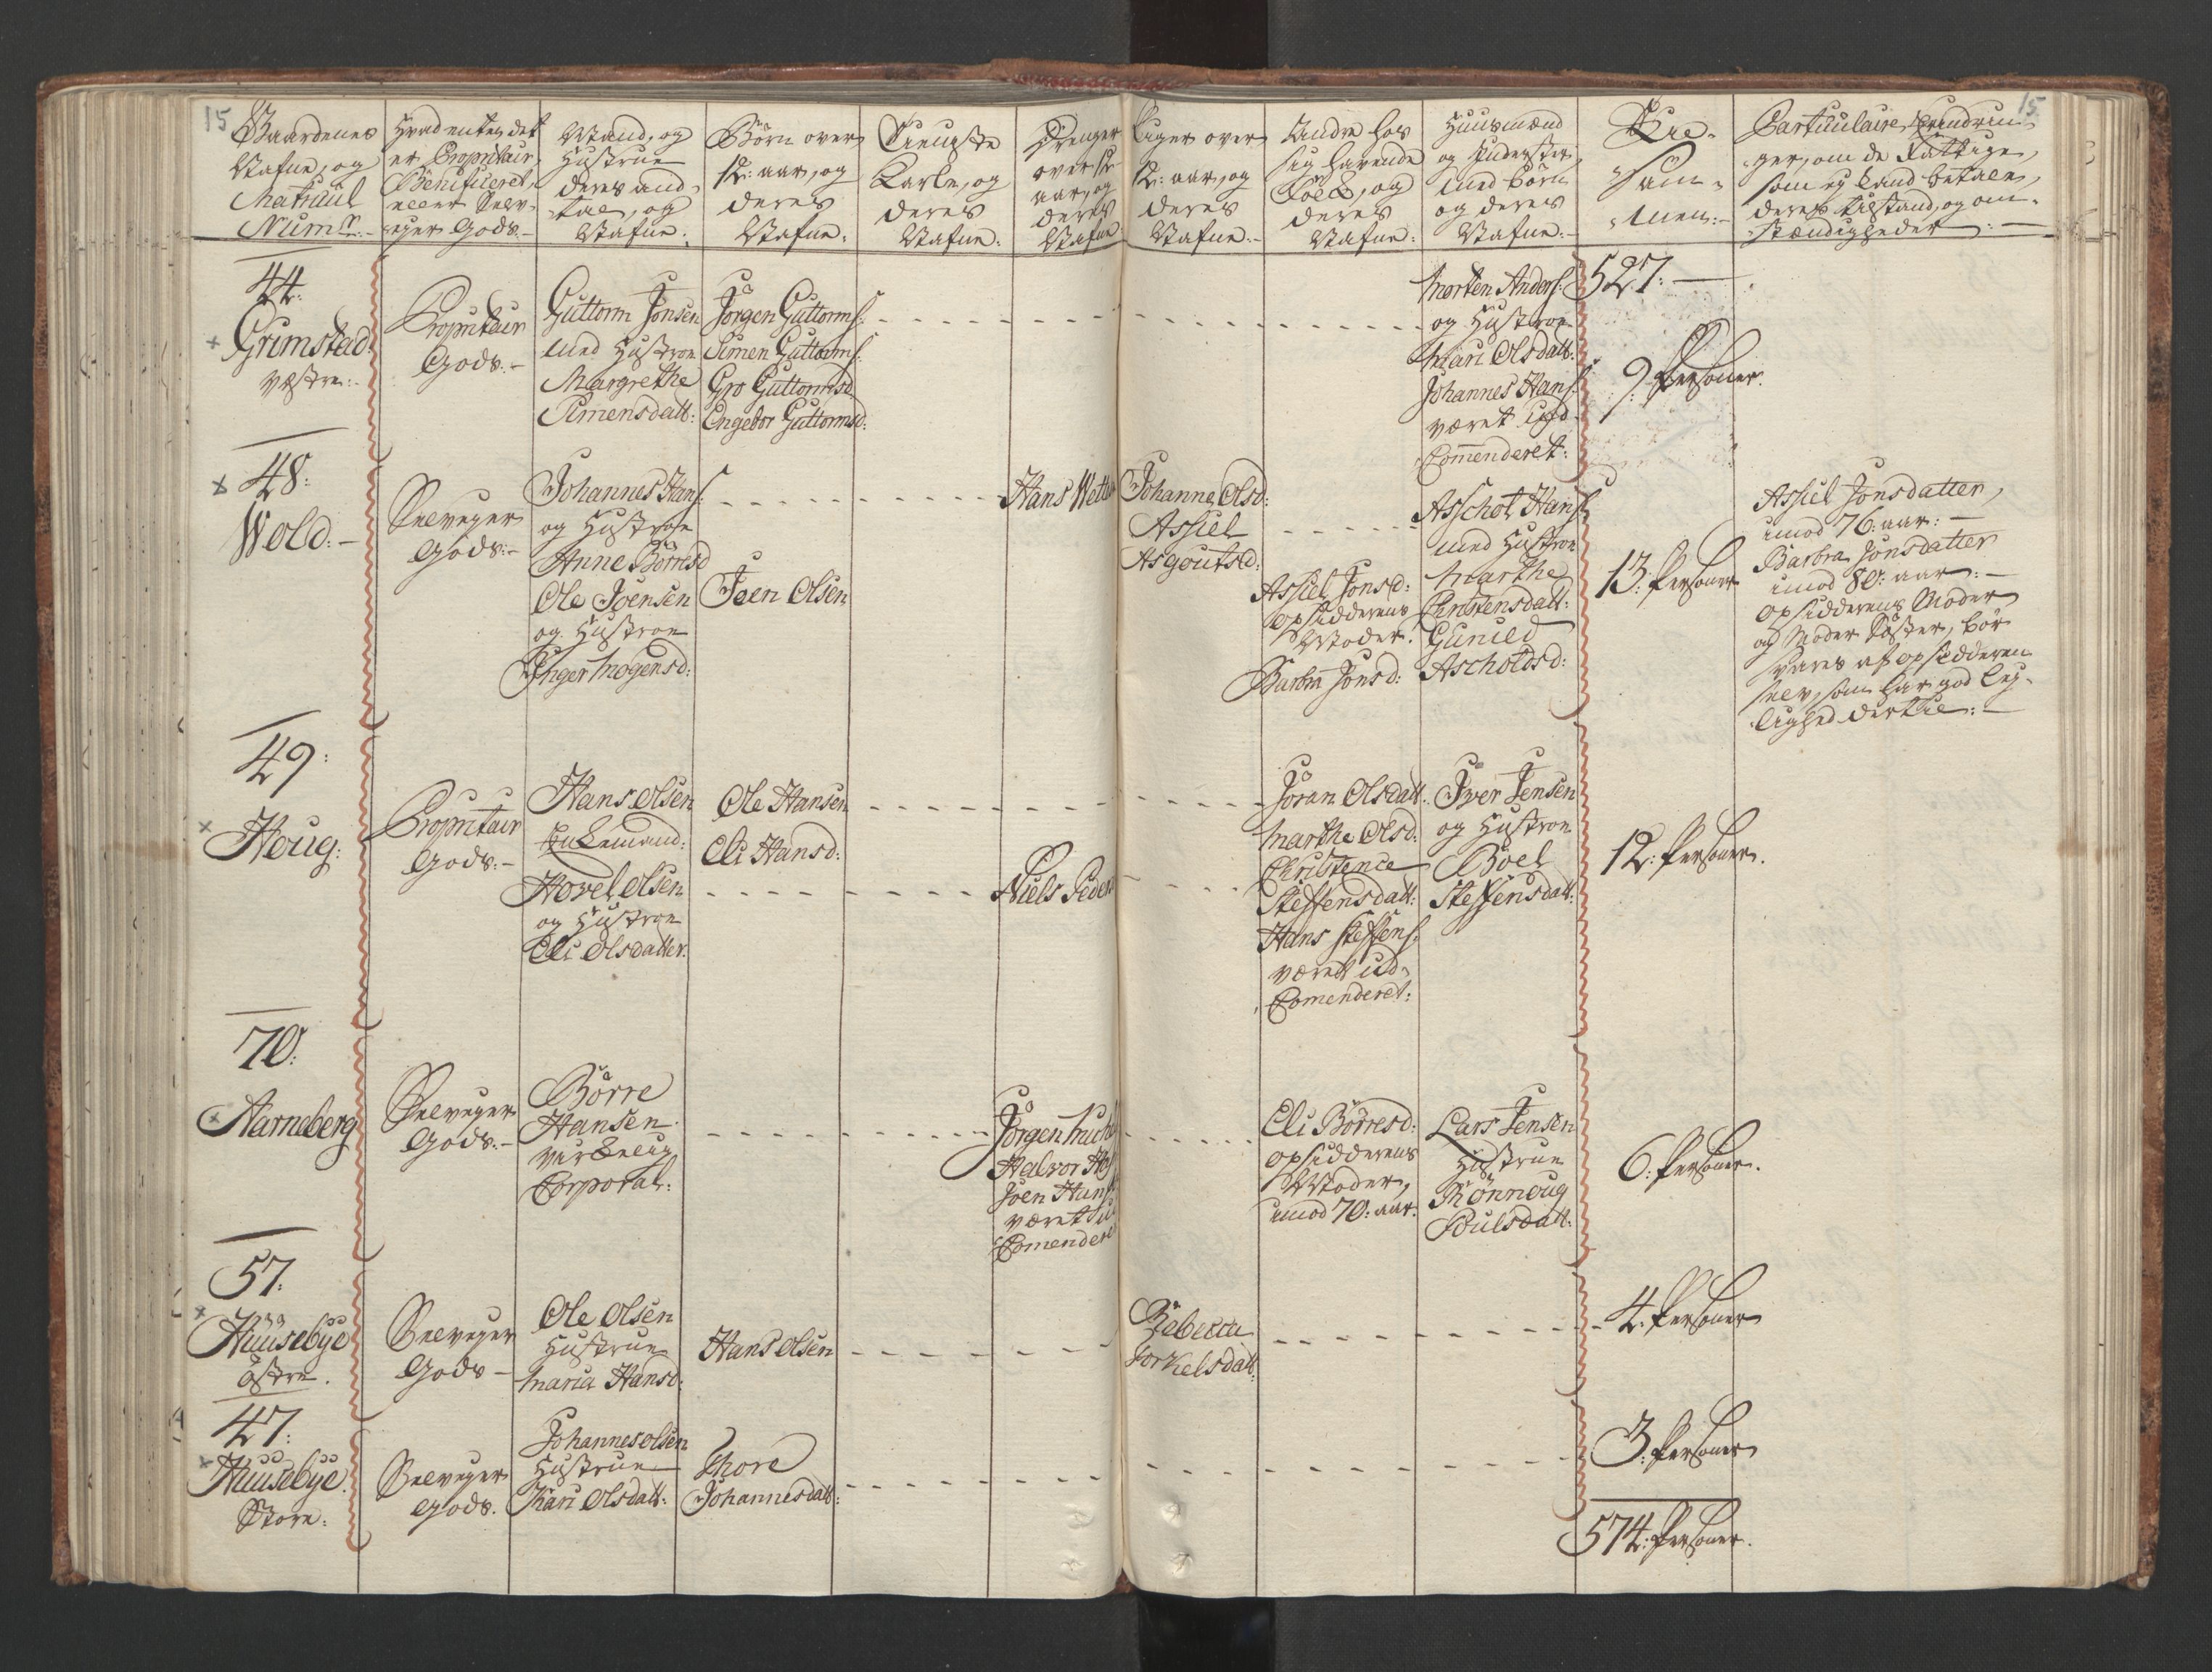 15
15
Gaardenes
Nafne, og
Matricul
Num:r:-
Hvad enten det
er Proprietair,
Beneficeret,
eller Selv-
eyer Gods:-
Mand, og
Hustrue
deres an-
tal, og
Nafne:
Börn over
12: aar, og
deres
Nafne:
Tieniste
Karle, og
deres
Nafne:
Drenger
over 12
aar, og
deres
Nafne
Piger over
12: aar, og
deres
Nafne:-
Andre hos
sig havende
Folk, og
deres
Nafne:
Huusmænd
og Inderster,
med börn
og deres
Nafne:-
Til-
sam-
men:-
Particulaire Erindrin-
ger, om de Fattige,
som ey kand betale,
deres tilstand, og om-
stændigheder:-
44:
Grimstad
væstre:-
Proprietair
Gods:-
Guttorm Jonsen
med Hustroe
Margrethe
Simensdatt:
Jörgen Guttorms:
Simen Guttorms:
Gro Guttormsd
Engebor Guttormsd:
Morten Anders:
og Hustroe
Mari Olsdatt:
Johannes Hans:
været ud-
Commenderet:
527:-
9: Personer.
48:
Wold:-
Selveyer
Gods:-
Johannes Hans:
og Hustroe
Anne Börresd
Ole Joensen
og Hustroe
Inger Mogensd:
Joen Olsen
Hans Wett
Johanne Olsd:
Assiel
Asgoutsd:
Assiel Jonsd:
opsidderens
Moder:
Barbra Jonsd:
Asschot Hans:
med Hustroe
Marthe
Christensdatt:
Gunild
Ascholdsd:
13: Personer
Assiel Jonsdatter,
imod 76: aar:-
Barbra Jonsdatter
imod 80: aar:-
opsidderens Moder
og Moder Söster, bör
svares af opsidderen
selv, som har god Ley-
lighed dertil:-
49:
Houg:
Proprietair
Gods:-
Hans Olsen
Enkemand:
Hovel Olsen
og Hustroe
Eli Olsdatter.
Ole Hansen
Eli Hansd:
Niels Peders
Joran Olsdatt:
Marthe Olsd:
Christence
Steffensdatt:
Hans Steffens:
været ud-
Comenderet:
Iver Jensen
og Hustroe
Boel
Steffensdatt:
12: Personer.
70:
Aarneberg
Selveyer
Gods:-
Börre
Hansen
virkelig
Corporal:
Jörgen Mich
Halvor H
Joen Hans
været u
Comendere
Eli Börresd:
opsidderens
Moder,
imod 70: aar:
Lars Jensen
Hustrue
Rönnoug
Poulsdatt:
6: Personer.
57:
Huusebye
östre.
Selveyer
Gods-
Ole Olsen
Hustrue
Maria Hansd:
Hans Olsen
Rebecca
Torkelsdatt:
4: Personer
47:
Huusebye.
Store:
Selveyer
Gods.
Johannes Olsen
Hustrue
Kari Olsdatt:
Thore
Johannesdatt:
3: Personer
574: Personer.